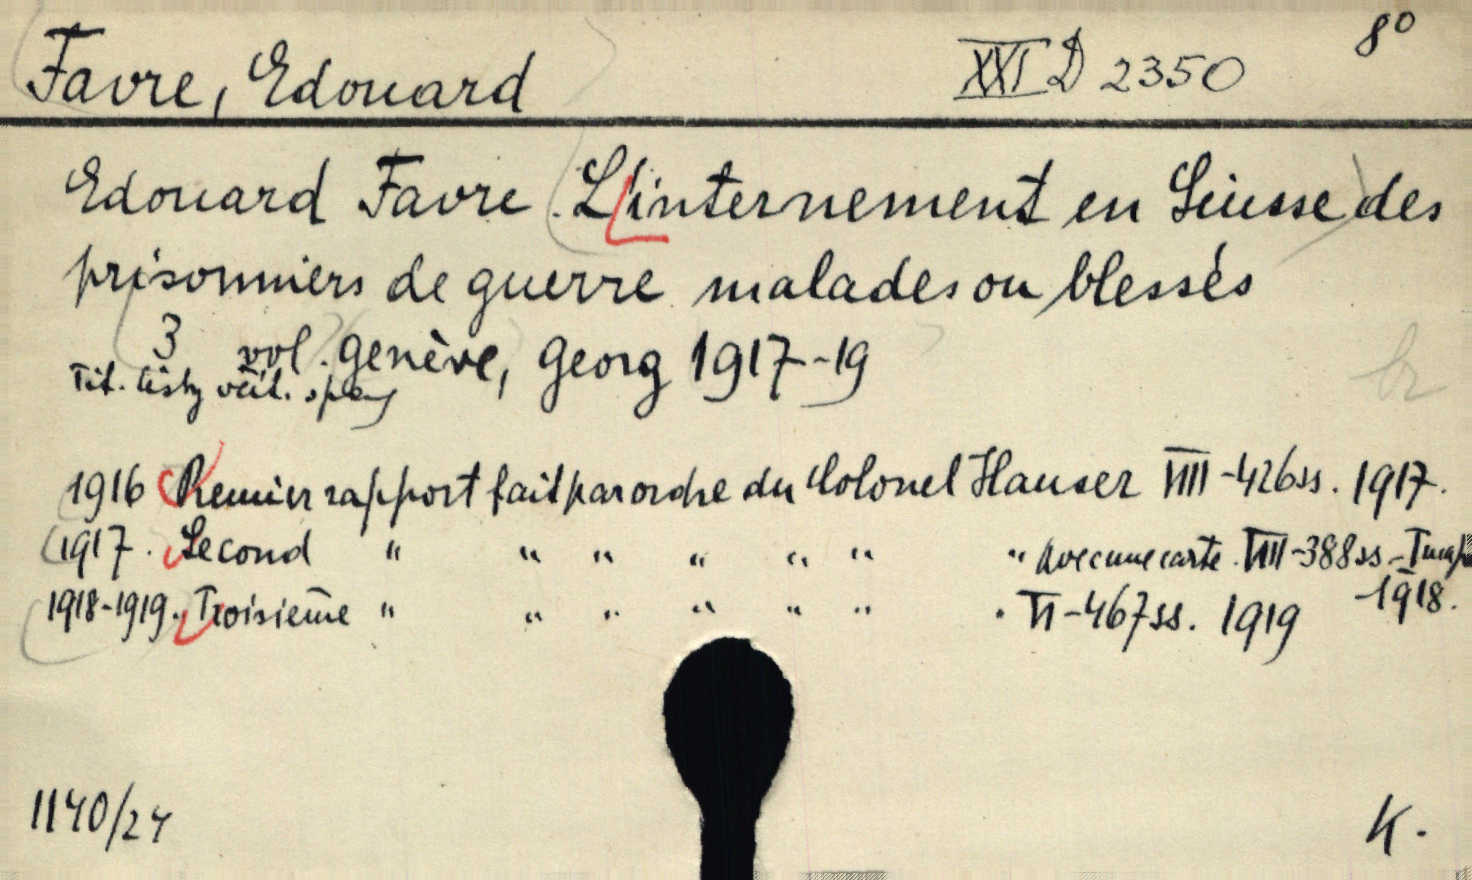 Favre, Edouard
XXI D 2350
8°
Edouard Favre. L'internement en Suisse des
prisonniers de guerre malades ou blessés
3 vol. Genève, Georg 1917-19
Tit. listy
1916 Premier rapport fait par ordre du Colonel Hauser VIII-426ss. 1917.
1917. Second " " " " " " " avec une carte. VIII-388ss-1 map
-1918.
1918-1919. Troisième " " " " " " . VI-467ss. 1919
br
1140/24
K.